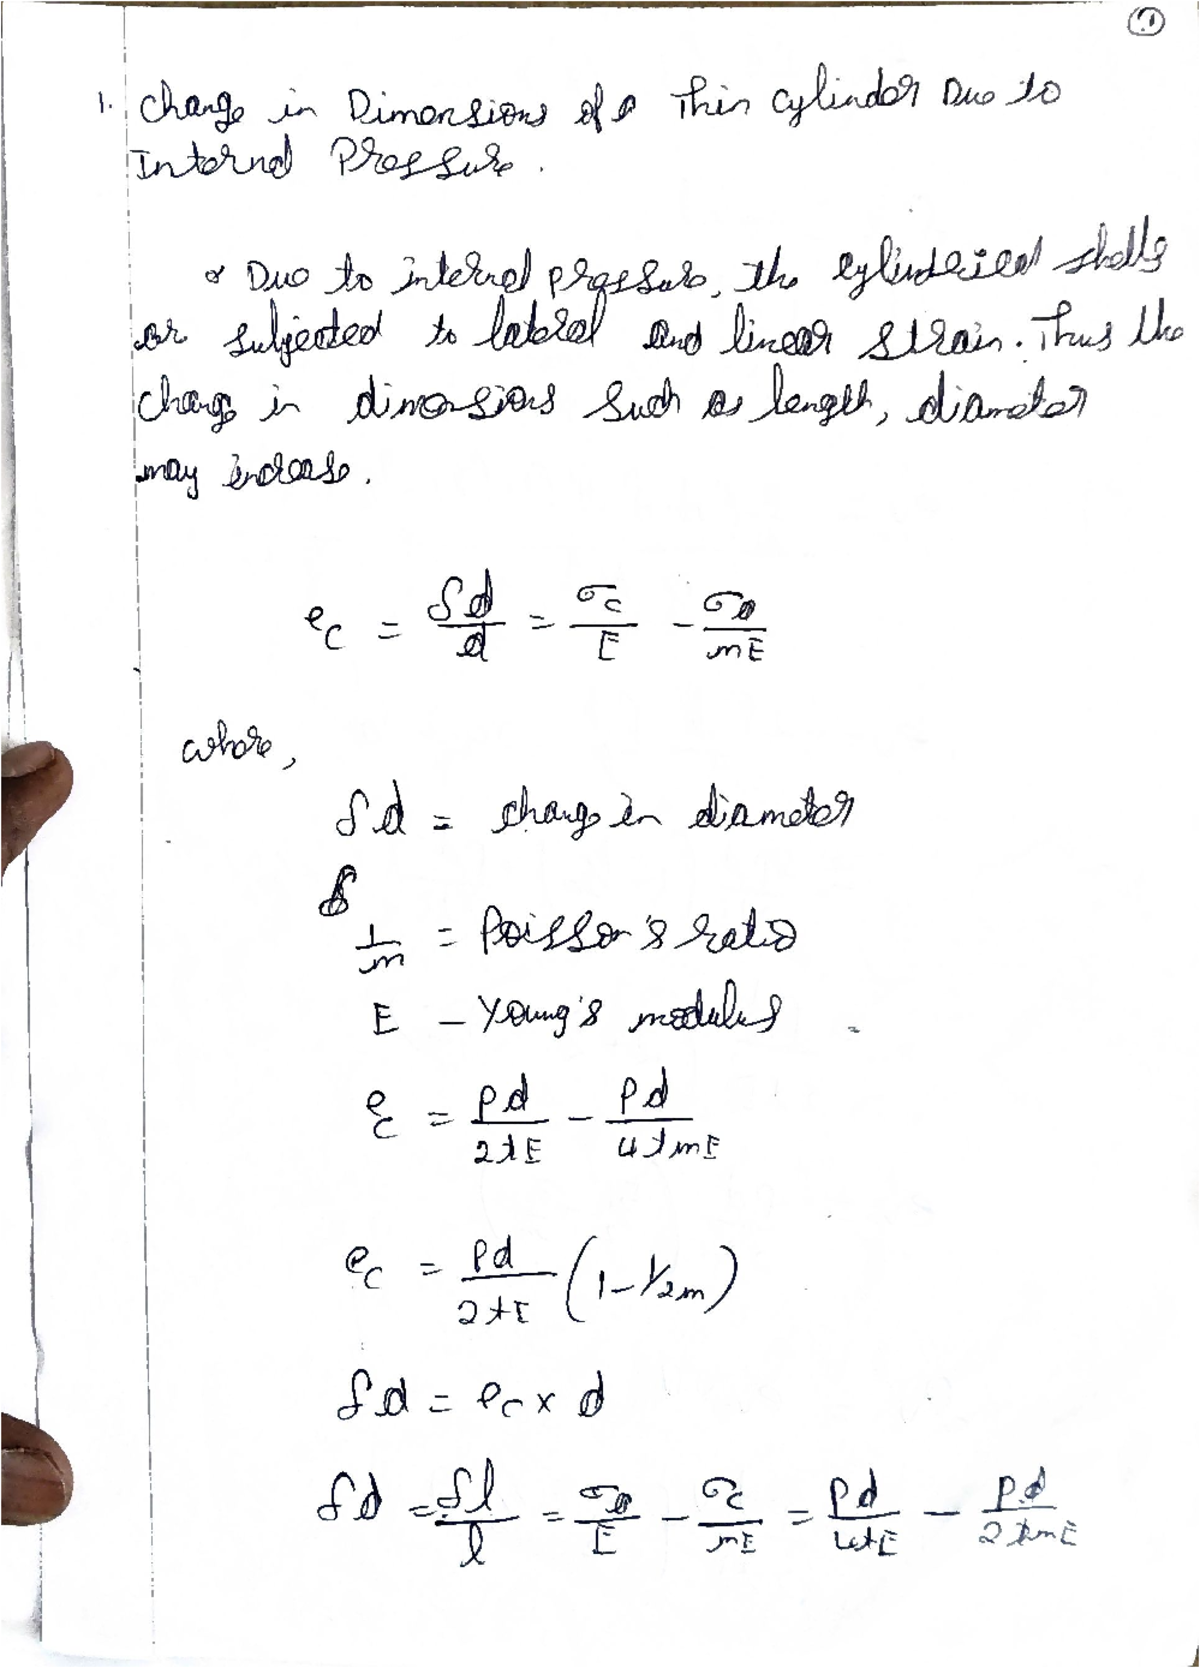 1
1. Change in Dimensions of a Thin cylinder Due to
Internal Pressure.
Due to internal pressure, the cylinderical shells
are subjected to lateral and linear strain. Thus the
change in dimensions such as length, diameter
may increase.
e_c = δd/d = σ_c/E - σ_a/mE
where,
δd = change in diameter
1/m = Poisson's ratio
E - Young's modulus
e_c = Pd/2tE - Pd/4tmE
e_c = Pd/2tE (1 - 1/2m)
δd = e_c × d
δd = δl/l = σ_a/E - σ_c/mE = Pd/4tE - Pd/2tmE